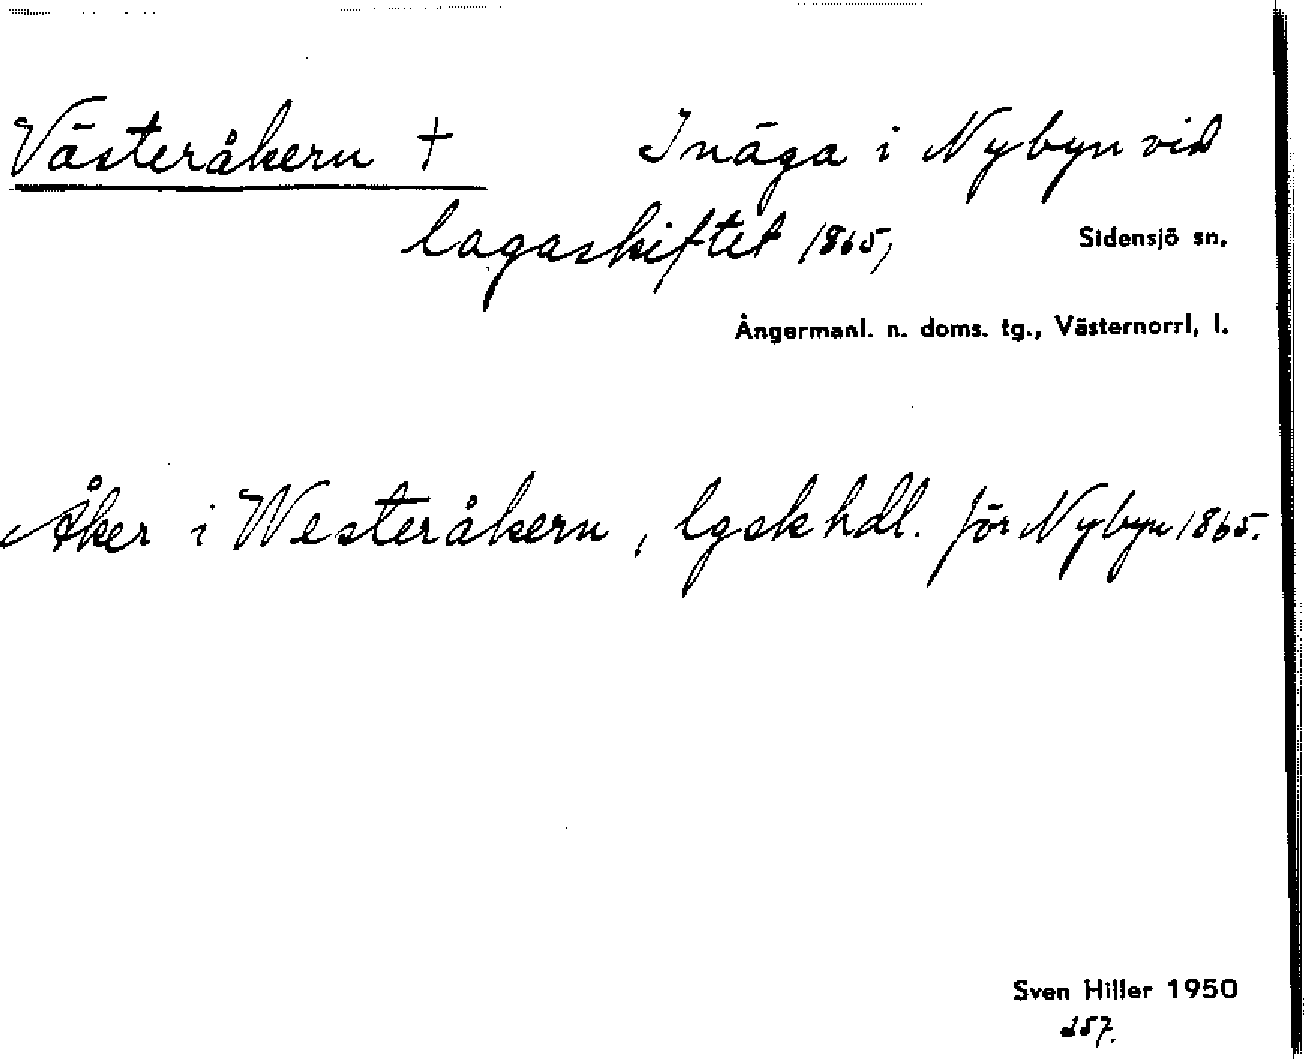 Västeråkern † Inäga i Nybyn vid
lagaskiftet 1865,
Sidensjö sn.
Ångermanl. n. doms. tg., Västernorrl. l.
Åker i Westeråkern, lgskhdl. för Nybyn 1865.
Sven Hiller 1950
257.